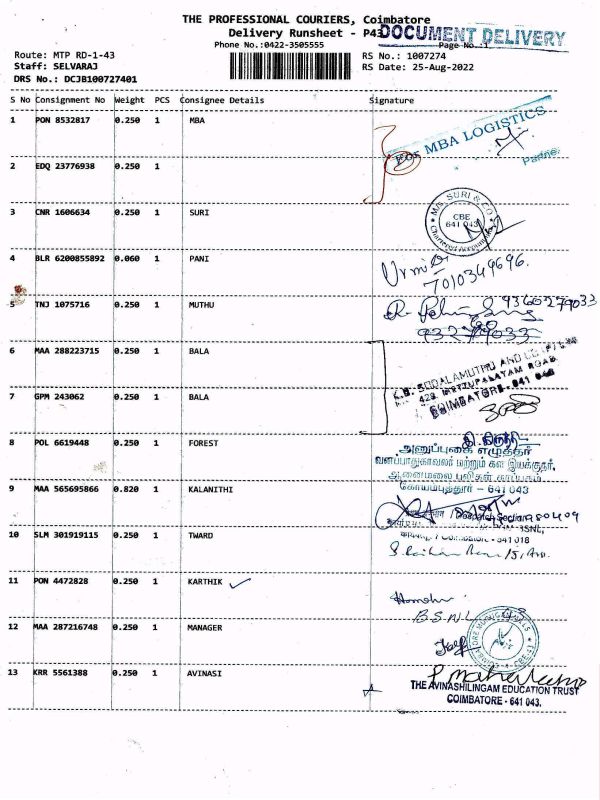 THE PROFESSIONAL COURIERS, Coimbatore
Delivery Runsheet - P43
DOCUMENT DELIVERY
Phone No.:0422-3505555
Page No.:1
Route: MTP RD-1-43
RS No.: 1007274
Staff: SELVARAJ
RS Date: 25-Aug-2022
DRS No.: DCJB100727401
S No Consignment No Weight PCS Consignee Details Signature
1 PON 8532817 0.250 1 MBA
For MBA LOGISTICS
Partner
2 EDQ 23776938 0.250 1
3 CNR 1606634 0.250 1 SURI
M/s. SURI & CO
CBE
641 043
Chartered Accountants
4 BLR 6200855892 0.060 1 PANI
7010349696.
5 TNJ 1075716 0.250 1 MUTHU
9360279033
6 MAA 288223715 0.250 1 BALA
7 GPM 243062 0.250 1 BALA
COIMBATORE - 641 043
8 POL 6619448 0.250 1 FOREST
அனுப்புகை எழுத்தர்
வனப்பாதுகாவலர் மற்றும் கள இயக்குநர்,
ஆனைமலை புலிகள் காப்பகம்
கோயம்புத்தூர் - 641 043
9 MAA 565695866 0.820 1 KALANITHI
Despatch Section
BSNL,
10 SLM 301919115 0.250 1 TWARD
641018
11 PON 4472828 0.250 1 KARTHIK
BSNL
12 MAA 287216748 0.250 1 MANAGER
13 KRR 5561388 0.250 1 AVINASI
THE AVINASHILINGAM EDUCATION TRUST
COIMBATORE - 641 043.